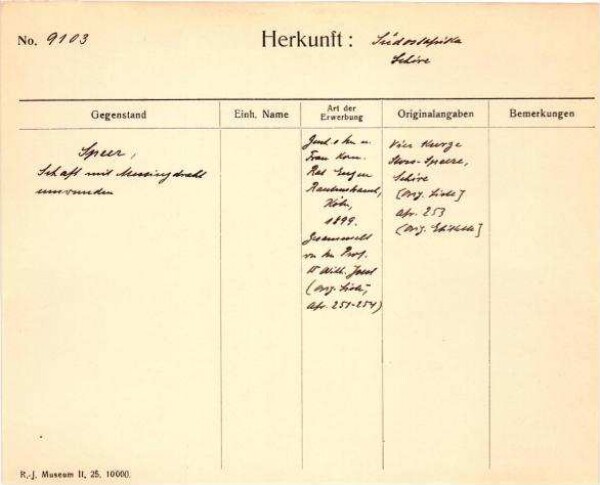 No. 9103
Herkunft: Südostafrika
Schire
Gegenstand
Einh. Name
Art der Erwerbung
Originalangaben
Bemerkungen
Speer,
Schaft mit Messingdraht
umwunden
Gesch. v. Hn. u.
Frau Kom.
Rat Eugen
Rautenstrauch,
Köln,
1899.
Gesammelt
von Hn. Prof.
Wilh. Joest
(Orig. Liste,
Afr. 251-254)
Vier kurze
Stoss-Speere,
Schire
[Orig. Liste]
Afr. 253
[Orig. Etikette]
R.-J. Museum II, 25. 10000.